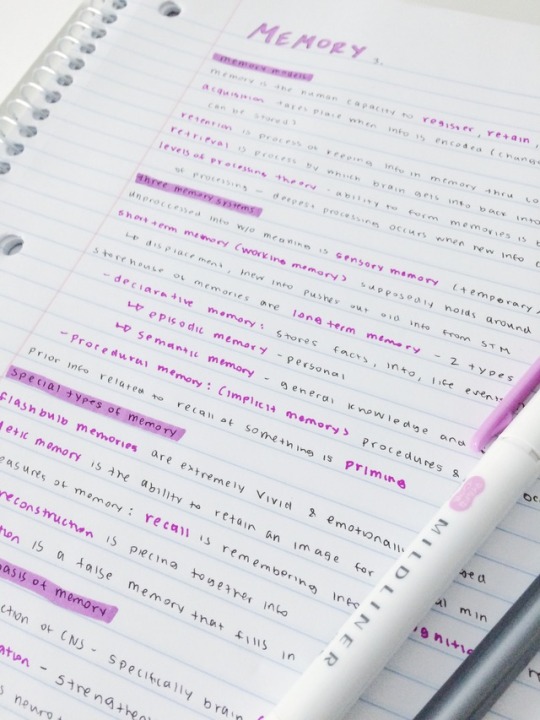 MEMORY
memory models
memory is the human capacity to register, retain,
acquisition takes place when info is encoded (change
can be stored)
retention is process of keeping info in memory thru
retrieval is process by which brain gets info back into
levels of processing theory - ability to form memories is
of processing - deepest processing occurs when new info
three memory systems
unproccessed info w/o meaning is sensory memory (temporary
short term memory (working memory) supposedly holds around
↳ displacement, new info pushes out old info from STM
storehouse of memories are long term memory - 2 types
- declarative memory: stores facts, info, life events
↳ episodic memory - personal
↳ semantic memory - general knowledge and
- procedural memory: (implicit memory) procedures &
prior info related to recall of something is priming
special types of memory
flashbulb memories are extremely vivid & emotionall
etic memory is the ability to retain an image for
easures of memory: recall is remembering info
reconstruction is piecing together info
is a false memory that fills in
asis of memory
ction of CNS - specifically brain
ation - strengthen
MILDLINER